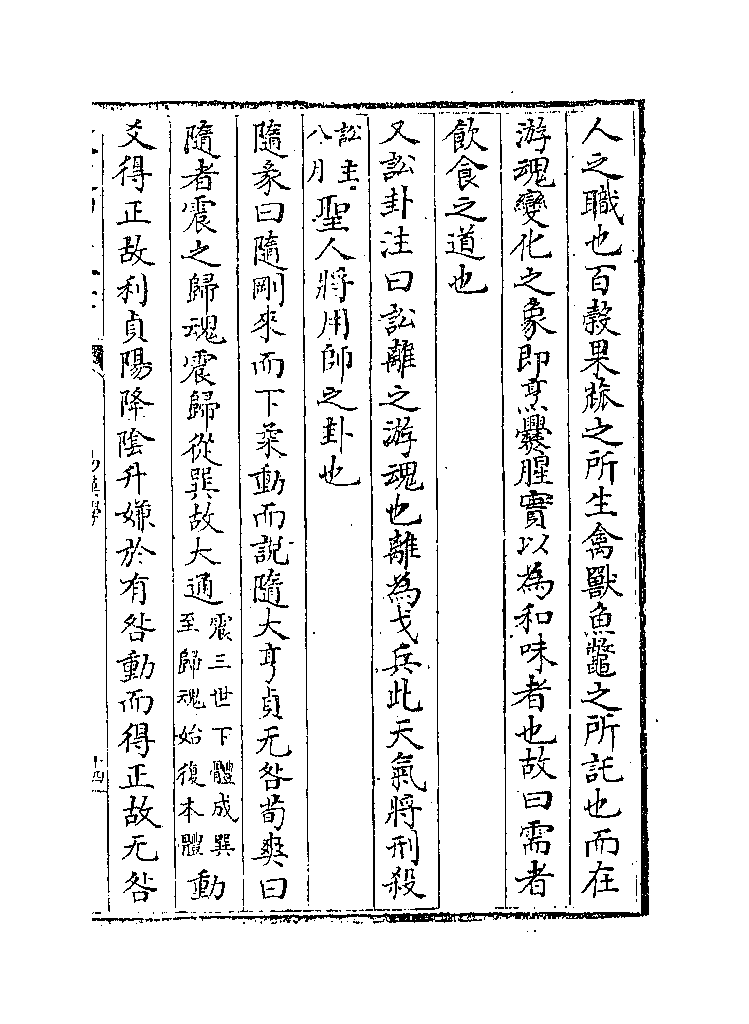 人之職也百穀果蓏之所生禽獸魚鼈之所託也而在
游魂變化之象即烹爨腥實以為和味者也故曰需者
飲食之道也
又訟卦注曰訟離之游魂也離為戈兵此天氣將刑殺
聖人將用師之卦也訟主八月
隨彖曰隨剛來而下柔動而說隨大亨貞无咎荀爽曰
隨者震之歸魂震歸從巽故大通震三世下體成巽至歸魂始復本體動
爻得正故利貞陽降陰升嫌於有咎動而得正故无咎
十四